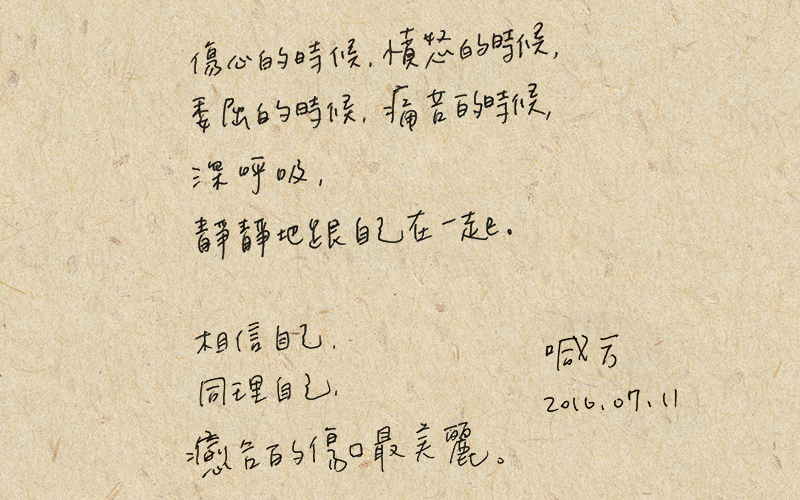 傷心的時候，憤怒的時候，
委屈的時候，痛苦的時候，
深呼吸，
靜靜地跟自己在一起。
相信自己，
同理自己，
癒合的傷口最美麗。
喊万
2016.07.11